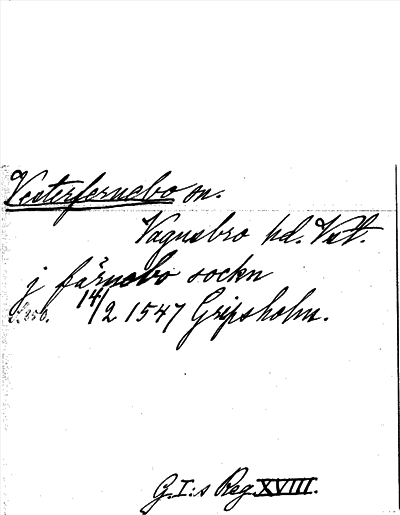 Vesterfernebo sn.
Vagnsbro hd. Vstl.
j färnebo sockn
S. 350. 14/2 1547 Gripsholm.
G. I:s Reg. XVIII.